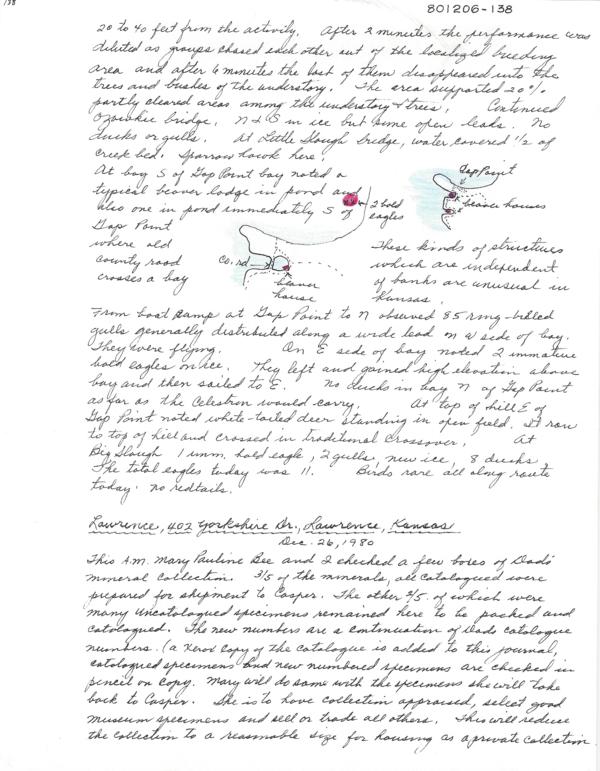 138
801206-138
20 to 40 feet from the activity. After 2 minutes the performance was
diluted as groups chased each other out of the localized breeding
area and after 6 minutes the last of them disappeared into the
trees and bushes of the understory. The area supported 20%
partly cleared areas among the understory & trees. Continued
Ozawkie bridge. N & S in ice but some open leads. No
ducks or gulls. At Little Slough bridge, water covered 1/2 of
creek bed. Sparrow hawk here.
At bay S of Gap Point bay noted a
typical beaver lodge in pond and
also one in pond immediately S of
Gap Point
where old
county road
crosses a bay
2 bald
eagles
Co. rd
beaver
house
Gap Point
beaver houses
These kinds of structures
which are independent
of banks are unusual in
Kansas.
From boat ramp at Gap Point to N observed 85 ring-billed
gulls generally distributed along a wide lead on W side of bay.
They were flying. On E side of bay noted 2 immature
bald eagles on ice. They left and gained high elevation above
bay and then sailed to E. No ducks in bay N of Gap Point
as far as the Celestron would carry. At top of hill E of
Gap Point noted white-tailed deer standing in open field. It ran
to top of hill and crossed in traditional crossover. At
Big Slough 1 imm. bald eagle, 2 gulls, new ice, 8 ducks.
The total eagles today was 11. Birds rare all along route
today. No redtails.
Lawrence, 402 Yorkshire Dr., Lawrence, Kansas
Dec. 26, 1980
This A.M. Mary Pauline Bee and I checked a few boxes of Dad's
mineral collection. 3/5 of the minerals, all catalogued were
prepared for shipment to Casper. The other 2/5 of which were
many uncatalogued specimens remained here to be packed and
catalogued. The new numbers are a continuation of Dads catalogue
numbers. (a Xerox copy of the catalogue is added to this journal,
catalogued specimens and new numbered specimens are checked in
pencil on copy. Mary will do same with the specimens she will take
back to Casper. She is to have collection appraised, select good
museum specimens and sell or trade all others. This will reduce
the collection to a reasonable size for housing as a private collection